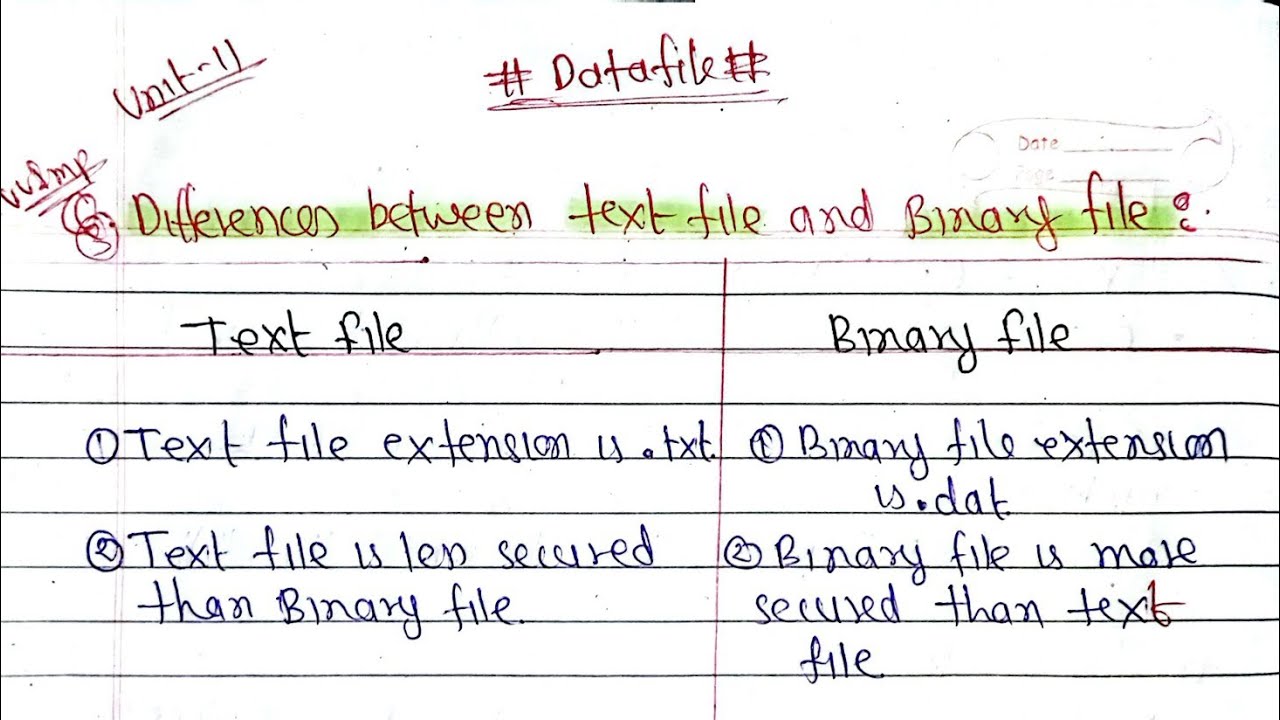 Unit-11
# Datafile #
Date
Page
VVImp
Q.3 Differences between text file and Binary file :.
Text file
Binary file
① Text file extension is .txt.
① Binary file extension
is .dat
② Text file is less secured
than Binary file.
② Binary file is more
secured than text
file